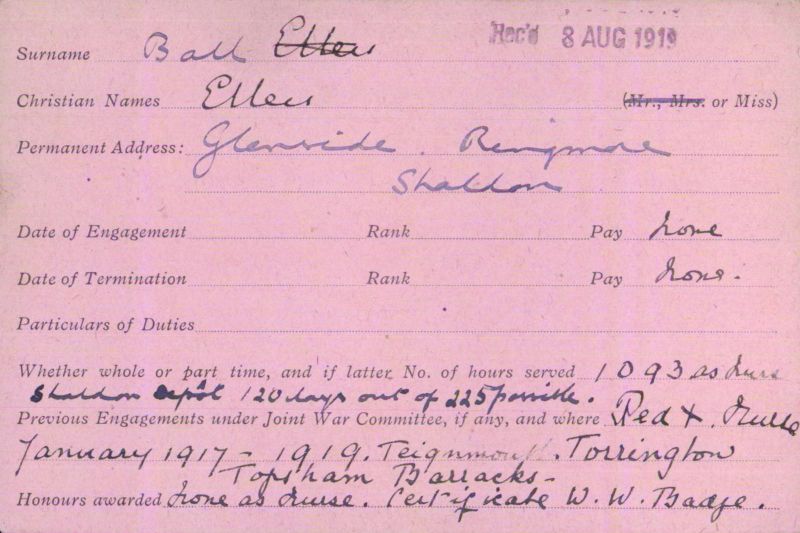 Rec'd 8 AUG 1919
Surname Ball Ellen
Christian Names Ellen (Mr., Mrs. or Miss)
Permanent Address: Glenside. Ringmore
Shaldon
Date of Engagement Rank Pay None
Date of Termination Rank Pay None.
Particulars of Duties
Whether whole or part time, and if latter No. of hours served 1093 as Nurse
Shaldon Depôt 120 days out of 225 possible.
Previous Engagements under Joint War Committee, if any, and where Red X. Nurse
January 1917 - 1919. Teignmouth. Torrington
Topsham Barracks -
Honours awarded None as Nurse. Certificate W. W. Badge.